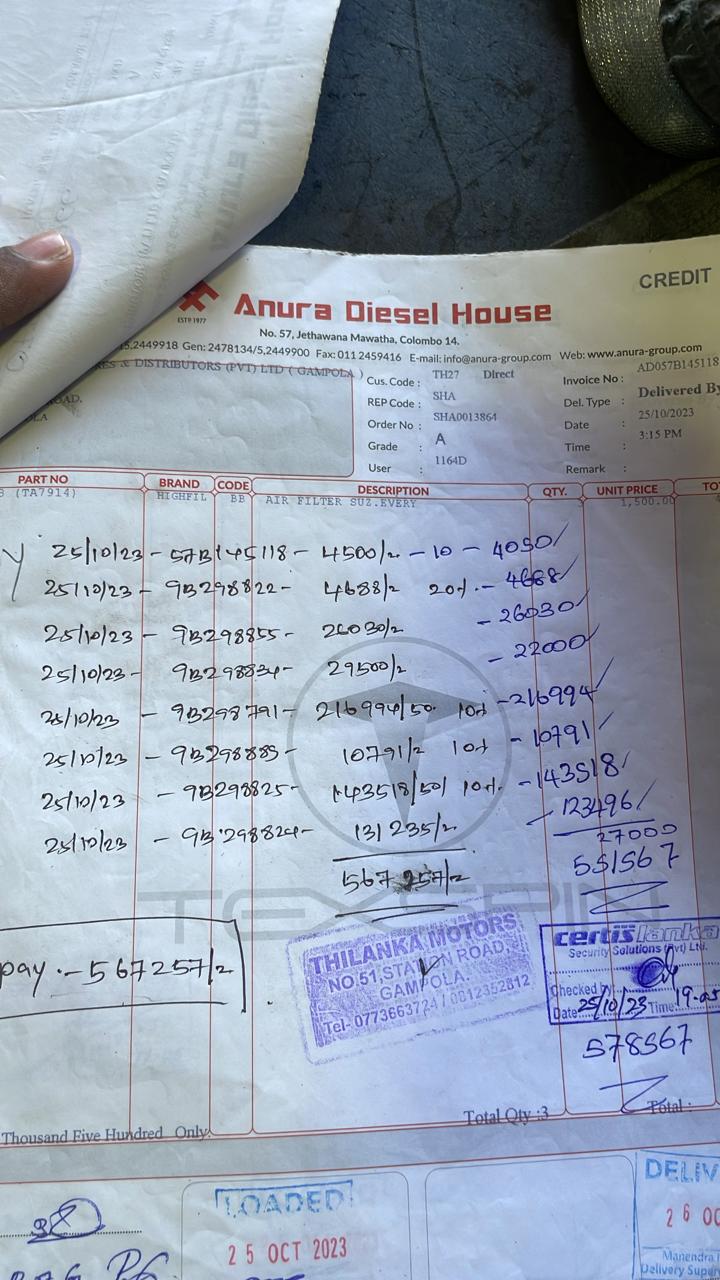 CREDIT
ESTD 1977
Anura Diesel House
No. 57, Jethawana Mawatha, Colombo 14.
5,2449918 Gen: 2478134/5,2449900 Fax: 011 2459416 E-mail: info@anura-group.com Web: www.anura-group.com
& DISTRIBUTORS (PVT) LTD ( GAMPOLA )
ROAD.
Cus. Code : TH27 DIrect
REP Code : SHA
Order No : SHA0013864
Grade : A
User : 1164D
Invoice No : AD057B145118
Del. Type : Delivered By
Date : 25/10/2023
Time : 3:15 PM
Remark :
PART NO BRAND CODE DESCRIPTION QTY. UNIT PRICE TO
(TA7914) HIGHFIL BB AIR FILTER SUZ.EVERY 3 1,500.00
25/10/23 - 57B145118 - 4500/2 - 10 - 4050/
25/10/23 - 9B298822 - 4688/2 20%. - 4688/
25/10/23 - 9B298855 - 26030/2 - 26030/
25/10/23 - 9B298834 - 29500/2 - 22000/
25/10/23 - 9B298791 - 216994/50 10% - 216994/
25/10/23 - 9B298889 - 10791/2 10% - 10791/
25/10/23 - 9B298825 - 143518/50/ 10%. - 143518/
25/10/23 - 9B298824 - 131235/2 - 123496/
27000
567257/2
551567
TEXSPIN
pay .- 567257/2
THILANKA MOTORS
NO.51, STATION ROAD,
GAMPOLA.
Tel- 0773663724 / 0812352812
certis lanka
Security Solutions (Pvt) Ltd.
Checked by
Date: 25/10/23 Time: 19.05
578567
Total Qty :3 Total :
Thousand Five Hundred Only.
LOADED
25 OCT 2023
DELIV
26 OC
Manendra
Delivery Super